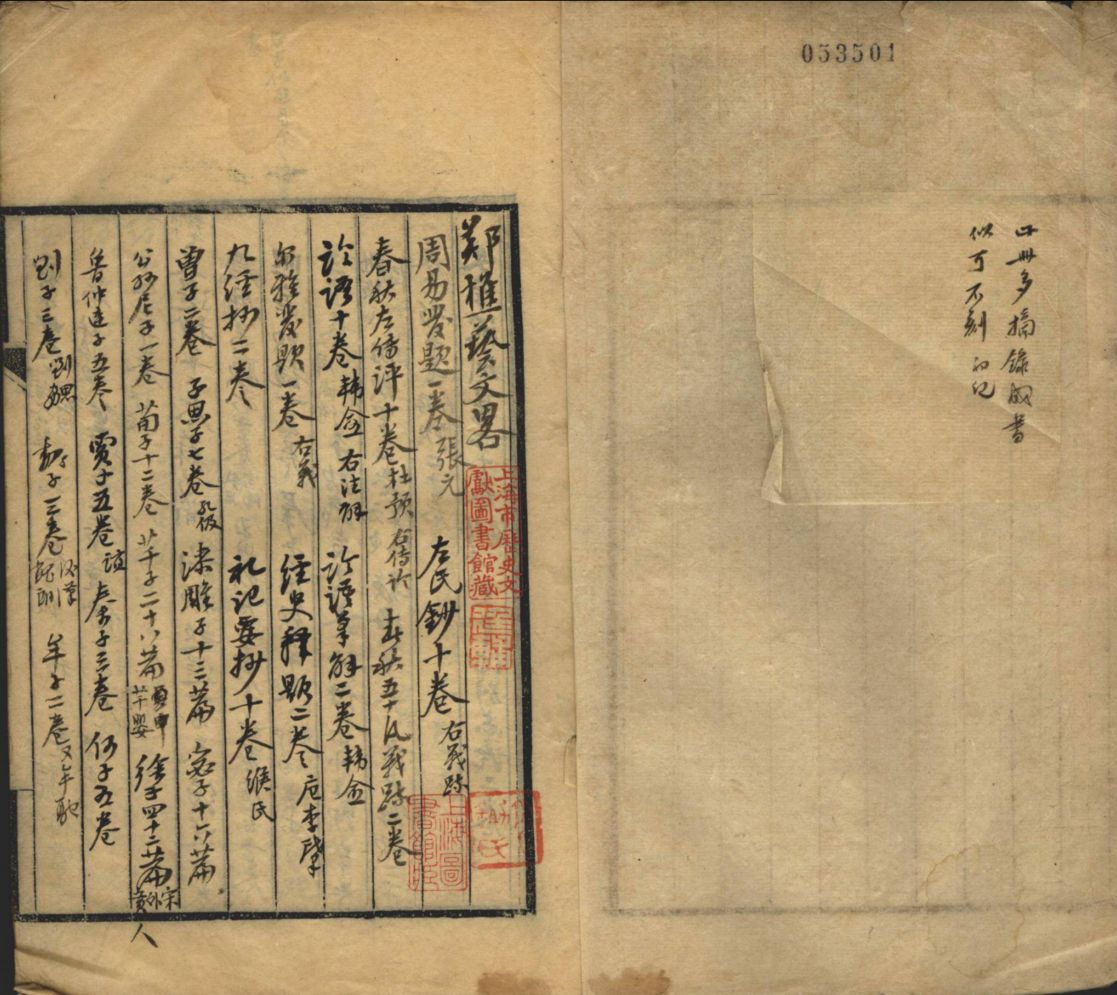 053501
此冊多摘錄國書
似可不刻
鄭樵藝文畧
周易發題一卷 張元 左氏鈔十卷 右義疏
春秋左傳評十卷 杜預 右傳論 春秋五十凡義疏二卷
論語十卷 韓愈 右注解 論語筆解二卷 韓愈
尔雅發題一卷 右義 經史釋題二卷 李肇
九經抄二卷 礼記要抄十卷 緱氏
曾子二卷 子思子七卷 孔伋 漆雕子十三篇 宓子十六篇
公孫尼子一卷 荀子十二卷 芊子二十八篇 芊嬰 徐子四十二篇 宋外黃人
魯仲連子五卷 賈子十五卷 誼 秦子三卷 何子五卷
劉子三卷 劉 子三卷 牟子二卷 又牟融
上海市歷史文獻圖書館藏
上海圖書館藏